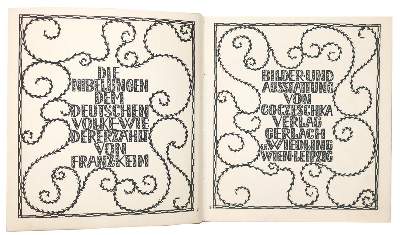 DIE
NIBELUNGEN
DEM
DEUTSCHEN
VOLKE WIE
DERERZÄHLT
VON
FRANZ KEIM
BILDER UND
AUSSTATTUNG
VON
C O CZESCHKA
VERLAG
GERLACH
U. WIEDLING
WIEN LEIPZIG